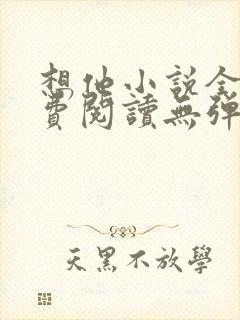 想他小说全
費閱讀無彈
天黑不放學